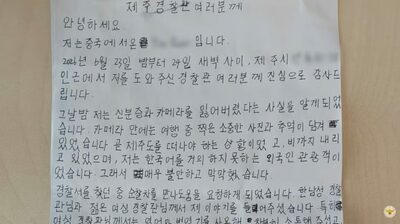 제주경찰관 여러분께
안녕하세요
저는 중국에서 온 입니다.
2026년 6월 23일 밤부터 24일 새벽 사이, 제주시
인근에서 저를 도와주신 경찰관 여러분께 진심으로 감사드
립니다.
그날 밤 저는 신분증과 카메라를 잃어버렸다는 사실을 알게 되었
습니다. 카메라 안에는 여행 중 찍은 소중한 사진과 추억이 담겨
있었습니다 곧 제주도를 떠나야 하는 상황이었고, 비까지 내리
고 있었으며, 저는 한국어를 거의 하지 못하는 외국인 관광객이
었습니다. 그래서 매우 불안하고 막막했습니다.
경찰서를 찾던 중 순찰차를 만나 도움을 요청하게 되었습니다. 한 남성 경찰
관님과 젊은 여성 경찰관님께서 제 이야기를 들어주셨습니다 특히
여성 경찰관님께서는 사용해 소통해 주셨고